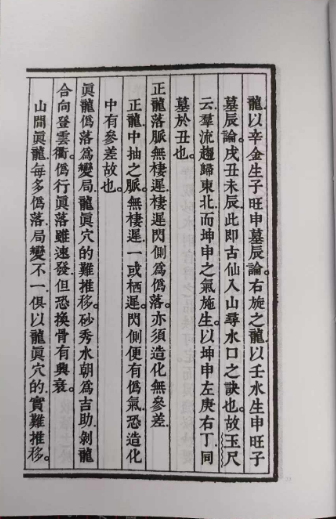 龍以辛金生子旺申墓辰論右旋之龍以壬水生申旺子
墓辰論戌丑未辰此即古仙入山尋水口之訣也故玉尺
云羣流趨歸東北而坤申之氣施生以坤申左庚右丁同
墓於丑也
正龍落脈無棲遲棲遲閃側爲僞落亦須造化無參差
正龍中抽之脈無棲遲一或栖遲閃側便有僞氣恐造化
中有參差故也
眞龍僞落爲變局龍眞穴的難推移砂秀水朝爲吉助剝龍
合向登雲衢僞行眞落雖速發但恐換骨有興衰
山間眞龍每多僞落局變不一俱以龍眞穴的實難推移